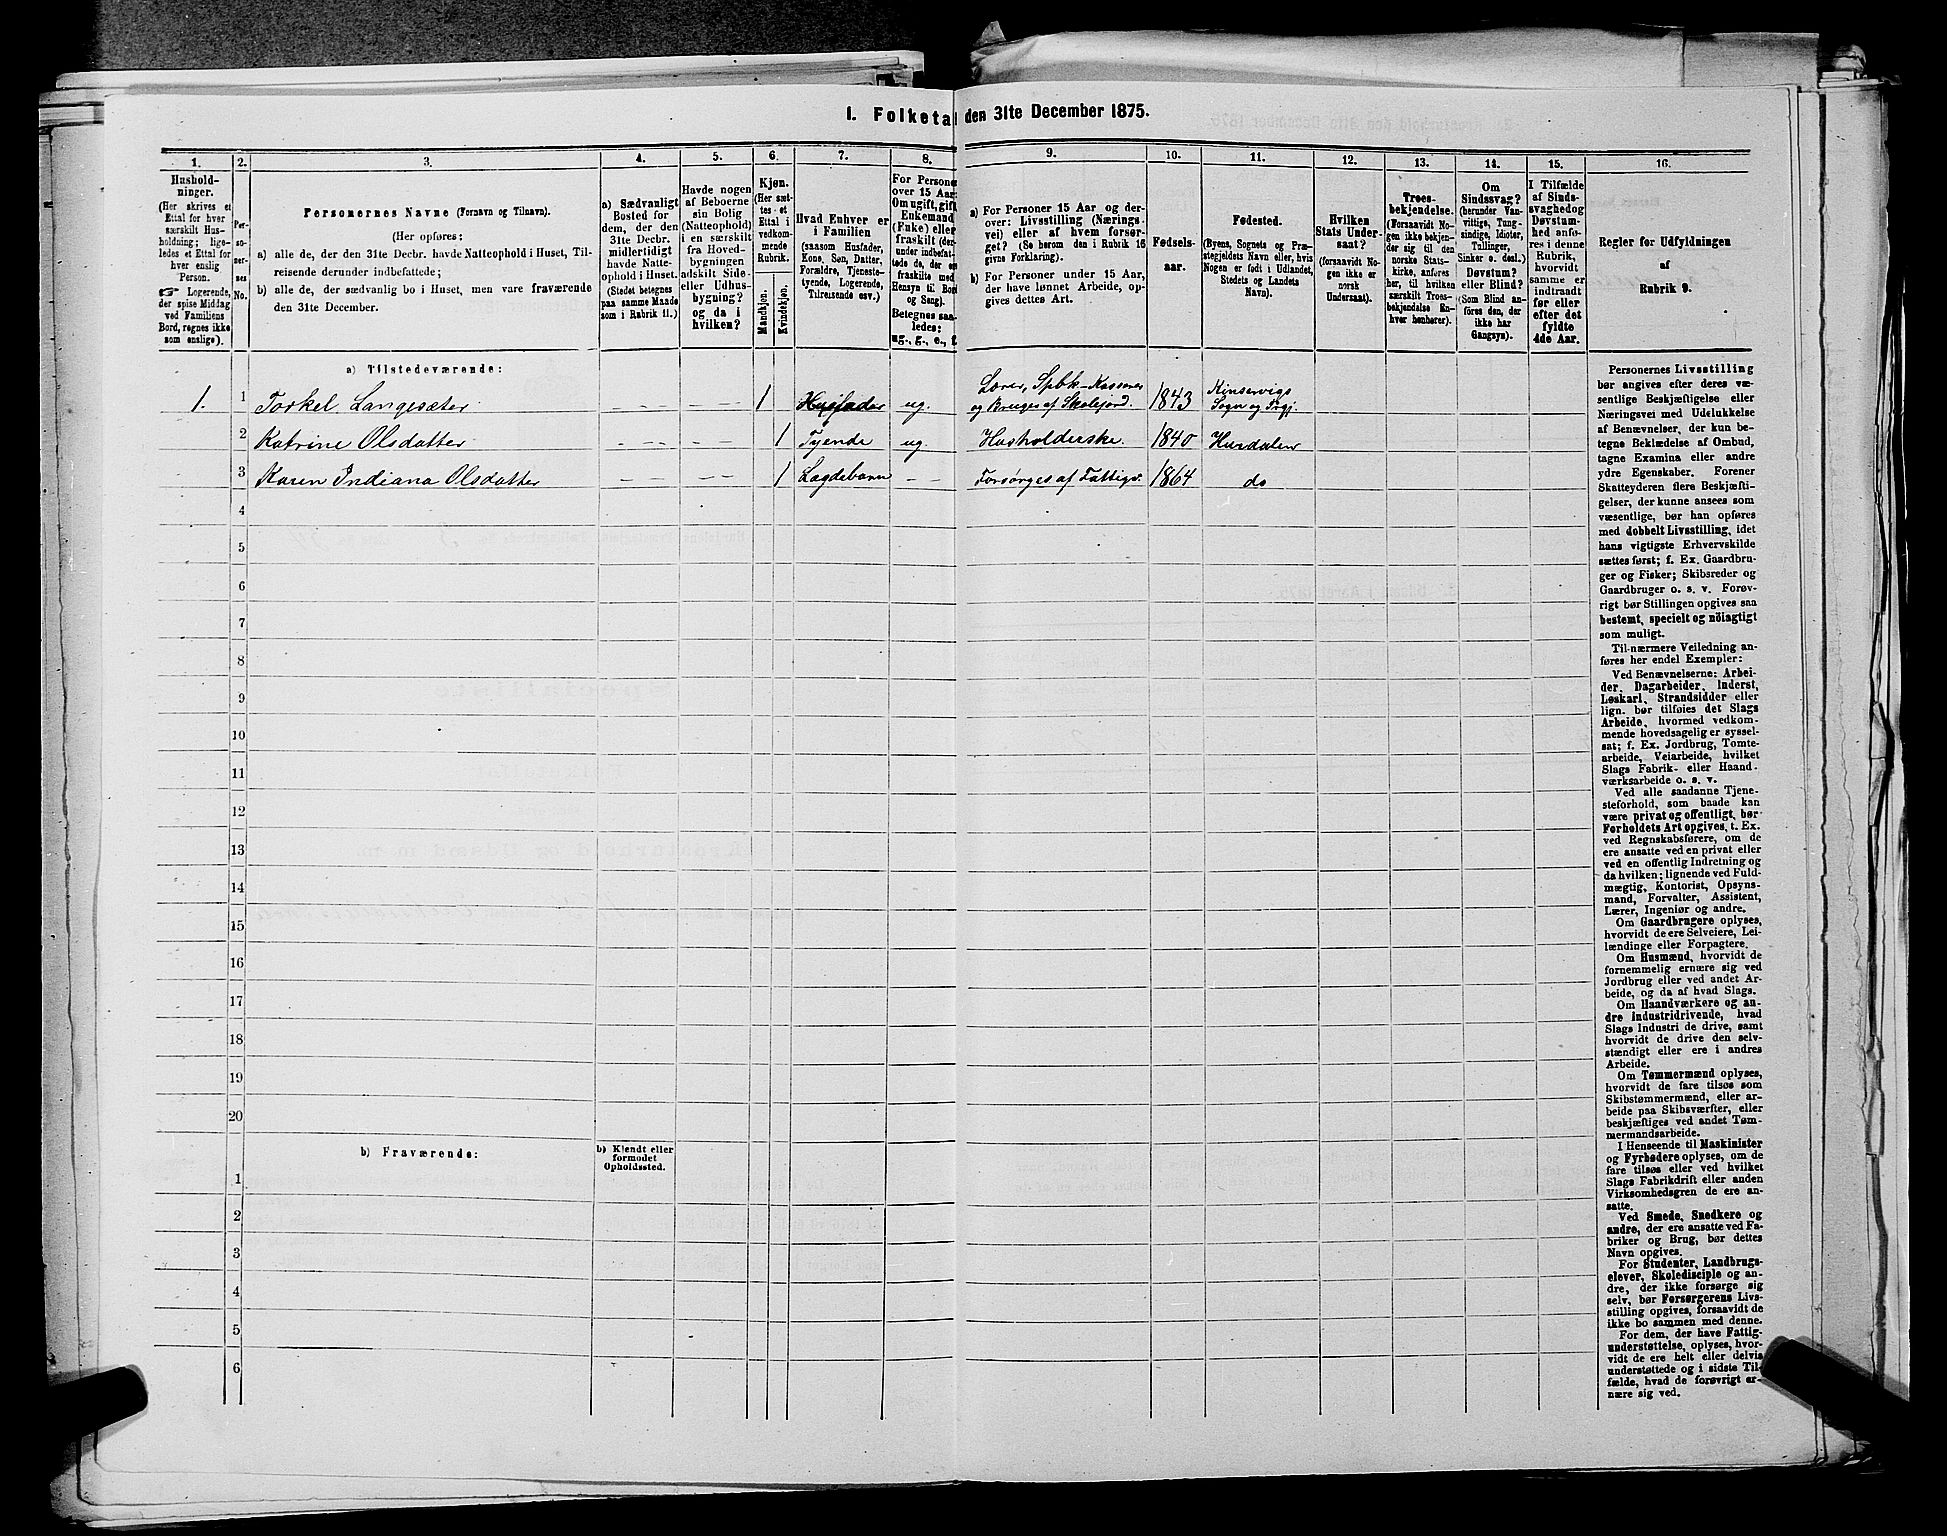 1. Folketal den 31te December 1875.
1. 2. 3. 4. 5. 6. 7. 8. 9. 10. 11. 12. 13. 14. 15. 16.
Hushold-
ninger.
(Her skrives et
Ettal for hver
særskilt Hus-
holdning; lige-
ledes et Ettal for
hver enslig
Person.
☞ Logerende,
der spise Middag
ved Familiens
Bord, regnes ikke
som enslige).
Per-
so-
ner-
nes
No.
Personernes Navne (Fornavn og Tilnavn).
(Her opføres:
a) alle de, der den 31te Decbr. havde Natteophold i Huset, Til-
reisende derunder indbefattede;
b) alle de, der sædvanlig bo i Huset, men vare fraværende
den 31te December.
a) Sædvanligt
Bosted for
dem, der den
31te Decbr.
midlertidigt
havde Natte-
ophold i Huset.
(Stedet betegnes
paa samme Maade
som i Rubrik 11.)
Havde nogen
af Beboerne
sin Bolig
(Natteophold)
i en særskilt
fra Hoved-
bygningen
adskilt Side-
eller Udhus-
bygning?
og da i
hvilken?
Kjøn.
(Her sæt-
tes et
Ettal i
vedkom-
mende
Rubrik.
Mandkjøn.
Kvindekjøn.
Hvad Enhver er
i Familien
(saasom Husfader,
Kone, Søn, Datter,
Forældre, Tjeneste-
tyende, Logerende,
Tilreisende osv.)
For Personer
over 15 Aar:
Om ugift, gift,
Enkemand
(Enke) eller
fraskilt (der-
under indbefat-
tede de, der ere
fraskilte med
Hensyn til Bord
og Seng).
Betegnes saa-
ledes:
ug., g., e., f.
a) For Personer 15 Aar og der-
over: Livsstilling (Nærings-
vei) eller af hvem forsør-
get? (Se herom den i Rubrik 16
givne Forklaring).
b) For Personer under 15 Aar,
der have lønnet Arbeide, op-
gives dettes Art.
Fødsels-
aar.
Fødested.
(Byens, Sognets og Præ-
stegjeldets Navn eller, hvis
Nogen er født i Udlandet,
Stedets og Landets
Navn).
Hvilken
Stats Under-
saat?
(forsaavidt No-
gen ikke er
norsk
Undersaat).
Troes-
bekjendelse.
(Forsaavidt No-
gen ikke bekjen-
der sig til den
norske Stats-
kirke, anføres
her, til hvilken
særskilt Troes-
bekjendelse En-
hver henhører).
Om
Sindssvag?
(herunder Van-
vittige, Tung-
sindige, Idioter,
Tullinger,
Sinker o. desl.)
Døvstum?
eller Blind?
(Som Blind an-
føres den, der
ikke har
Gangsyn).
I Tilfælde
af Sinds-
svaghed og
Døvstum-
hed anfø-
res i denne
Rubrik,
hvorvidt
samme er
indtraadt
før eller
efter det
fyldte
4de Aar.
Regler for Udfyldningen
af
Rubrik 9.
a) Tilstedeværende:
1. 1 Torkel Langesæter. – – – – 1 Husfader ug. Lærer, Spbk-Kasserer og Bruger af Skolejord. 1843 Kinservigs Sogn og Prgj.
2 Katrine Olsdatter – – – – 1 Tyende ug. Husholderske. 1840 Hurdalen
3 Karen Indiana Olsdatter – – – – 1 Lægdebarn – – Forsørges af Fattigv. 1864 do
4
5
6
7
8
9
10
11
12
13
14
15
16
17
18
19
20
b) Fraværende:
b) Kjendt eller
formodet
Opholdssted.
1
2
3
4
5
6
Personernes Livsstilling
bør angives efter deres væ-
sentlige Beskjæftigelse eller
Næringsvei med Udelukkelse
af Benævnelser, der kun be-
tegne Beklædelse af Ombud,
tagne Examina eller andre
ydre Egenskaber. Forener
Skatteyderen flere Beskjæfti-
gelser, der kunne ansees som
væsentlige, bør han opføres
med dobbelt Livsstilling, idet
hans vigtigste Erhvervskilde
sættes først; f. Ex. Gaardbru-
ger og Fisker; Skibsreder og
Gaardbruger o. s. v. Forøv-
rigt bør Stillingen opgives saa
bestemt, specielt og nöiagtigt
som muligt.
Til nærmere Veiledning an-
føres her endel Exempler:
Ved Benævnelserne: Arbei-
der, Dagarbeider, Inderst,
Løskarl, Strandsidder eller
lign. bør tilføies det Slags
Arbeide, hvormed vedkom-
mende hovedsagelig er syssel-
sat; f. Ex. Jordbrug, Tomte-
arbeide, Veiarbeide, hvilket
Slags Fabrik- eller Haand-
værksarbeide o. s. v.
Ved alle saadanne Tjene-
steforhold, som baade kan
være privat og offentligt, bør
Forholdets Art opgives, t. Ex.
ved Regnskabsførere, om de
ere ansatte ved en privat eller
ved en offentlig Indretning og
da hvilken; lignende ved Fuld-
mægtig, Kontorist, Opsyns-
mand, Forvalter, Assistent,
Lærer, Ingeniør og andre.
Om Gaardbrugere oplyses,
hvorvidt de ere Selveiere, Lei-
lændinge eller Forpagtere.
Om Husmænd, hvorvidt de
fornemmelig ernære sig ved
Jordbrug eller ved andet Ar-
beide, og da af hvad Slags.
Om Haandværkere og an-
dre industridrivende, hvad
Slags Industri de drive, samt
hvorvidt de drive den selv-
stændigt eller ere i andres
Arbeide.
Om Tømmermænd oplyses,
hvorvidt de fare tilsøs som
Skibstømmermænd, eller ar-
beide paa Skibsværfter, eller
beskjæftiges ved andet Tøm-
mermandsarbeide.
I Henseende til Maskinister
og Fyrbødere oplyses, om de
fare tilsøs eller ved hvilket
Slags Fabrikdrift eller anden
Virksomhedsgren de ere an-
satte.
Ved Smede, Snedkere og
andre, der ere ansatte ved Fa-
briker og Brug, bør dettes
Navn opgives.
For Studenter, Landbrugs-
elever, Skoledisciple og an-
dre, der ikke forsørge sig
selv, bør Forsørgerens Livs-
stilling opgives, forsaavidt de
ikke bo sammen med denne.
For dem, der have Fattig-
understøttelse, oplyses, hvor-
vidt de ere helt eller delvis
understøttede og i sidste Til-
fælde, hvad de forøvrigt er-
nære sig ved.